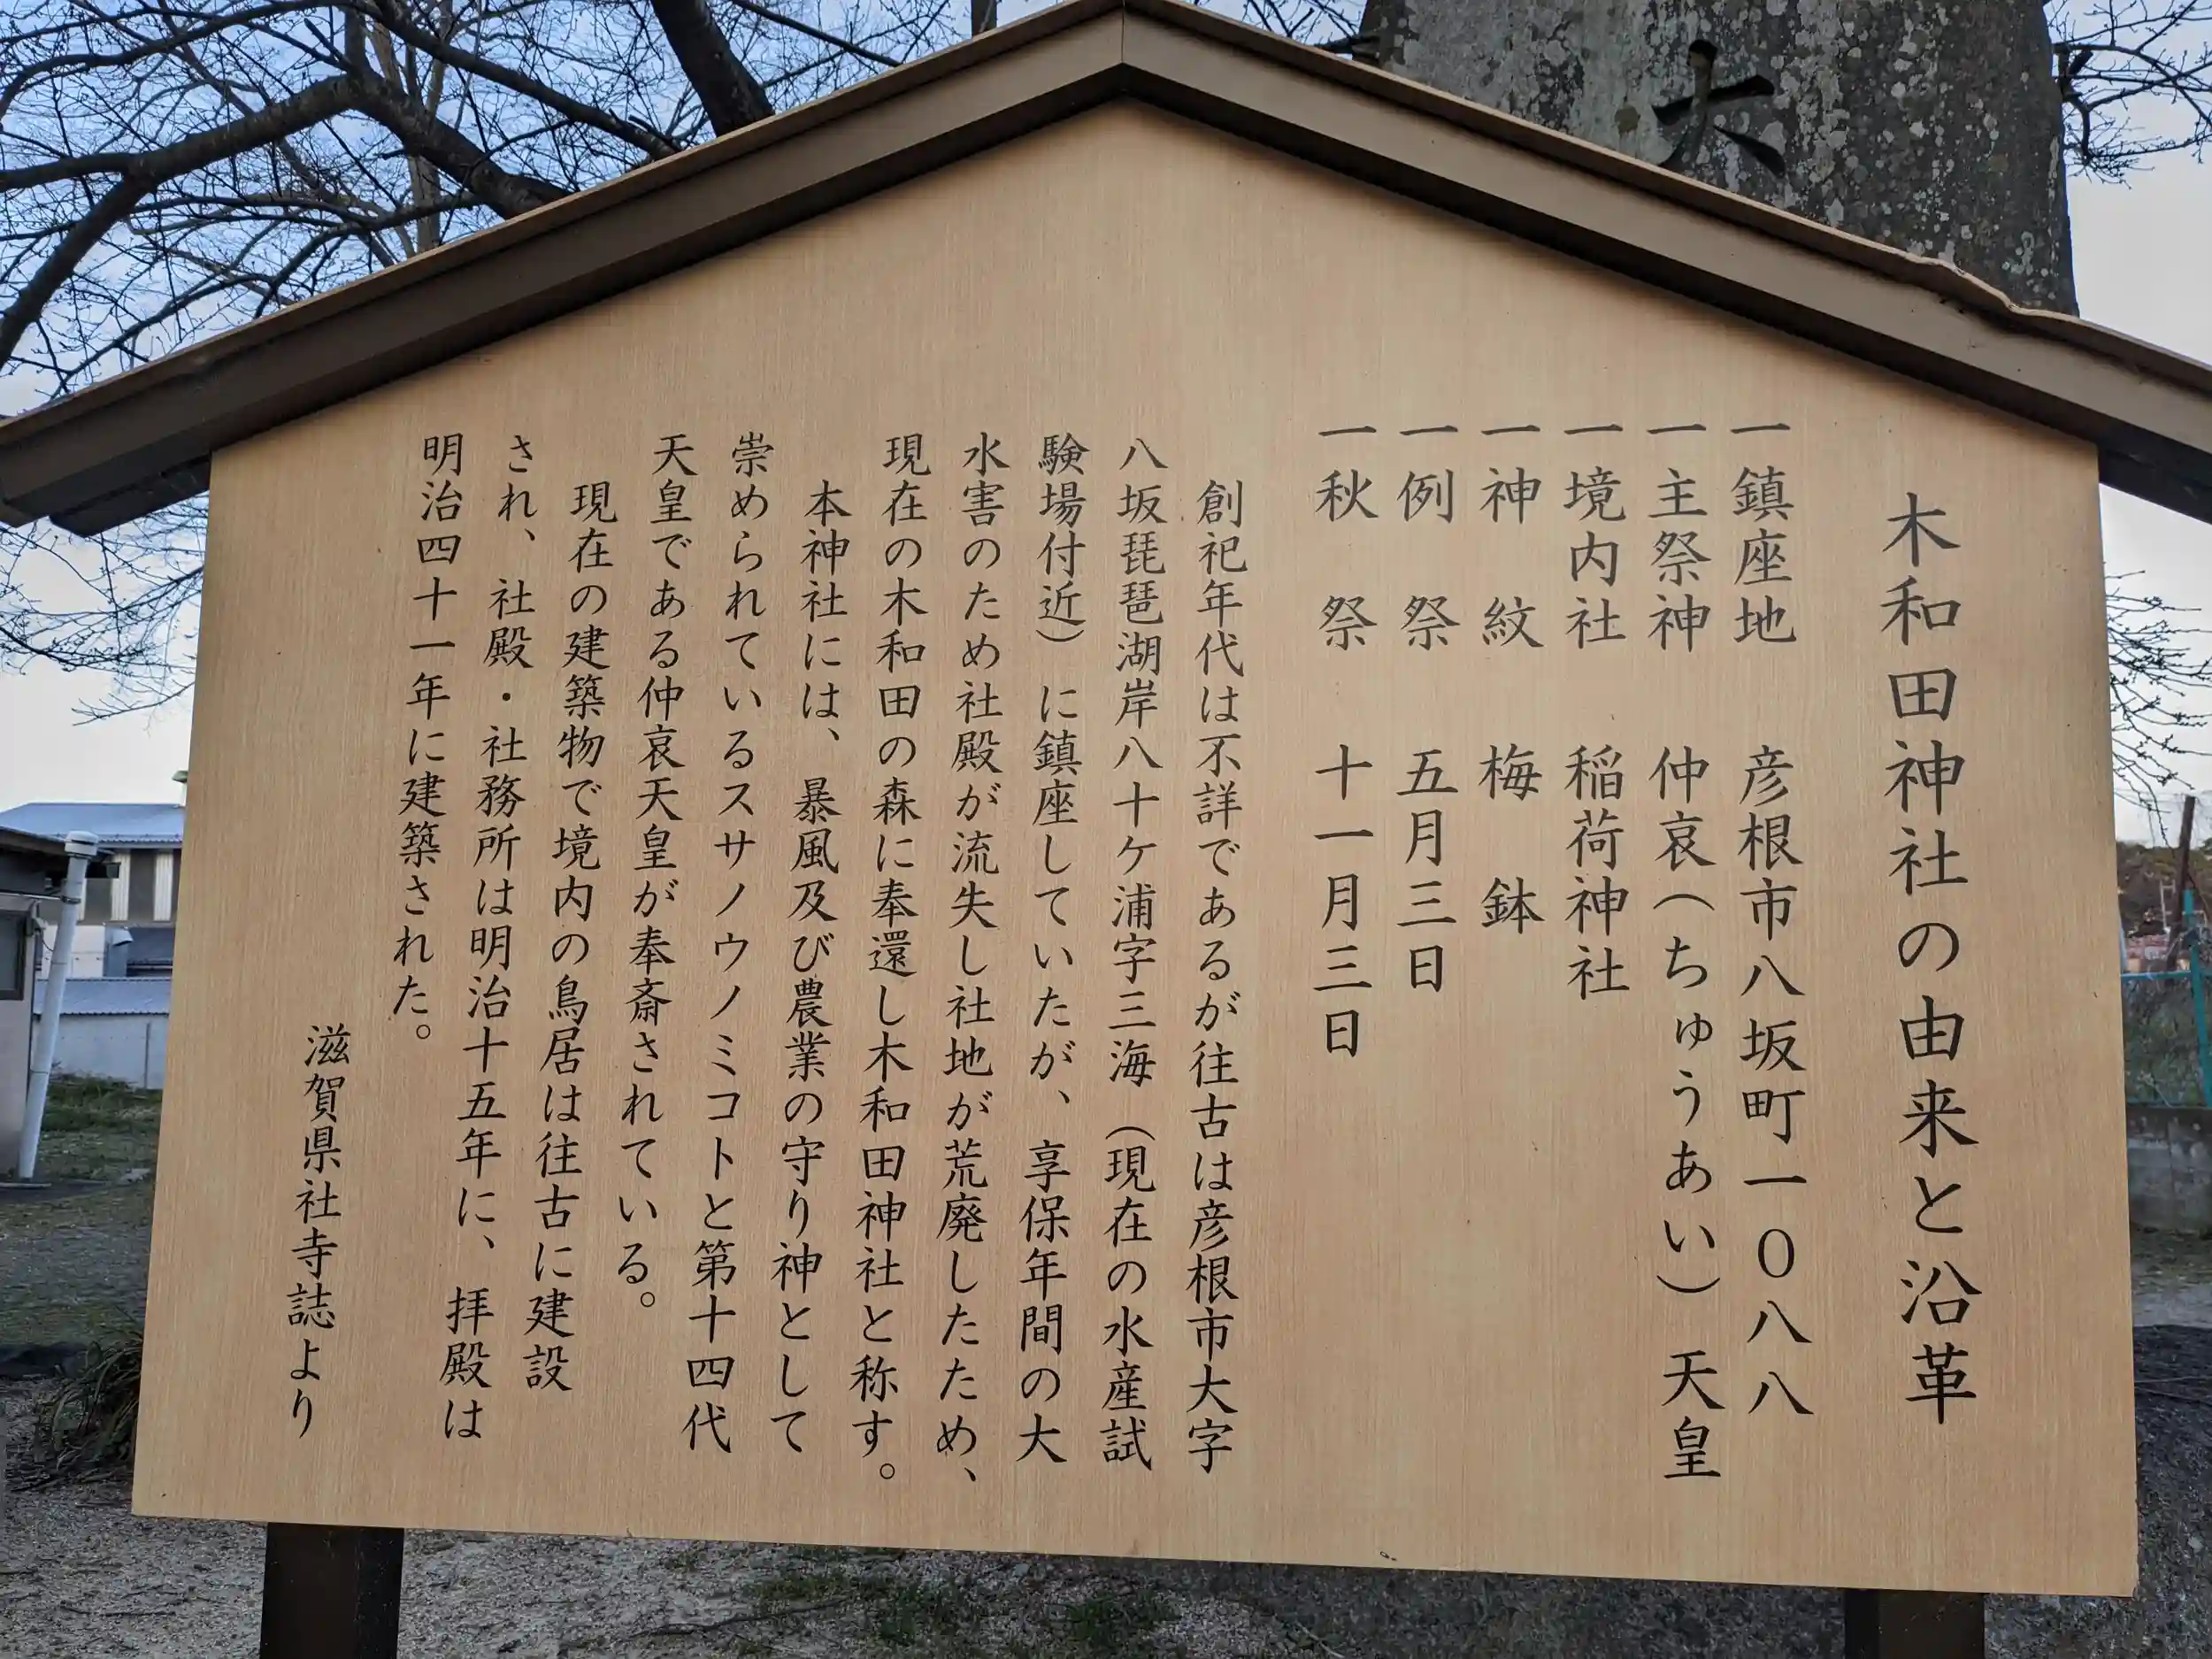 大
木和田神社の由来と沿革
一鎮座地　彦根市八坂町一〇八八
一主祭神　仲哀（ちゅうあい）天皇
一境内社　稲荷神社
一神　紋　梅　鉢
一例　祭　五月三日
一秋　祭　十一月三日
創祀年代は不詳であるが往古は彦根市大字
八坂琵琶湖岸八十ケ浦字三海（現在の水産試
験場付近）に鎮座していたが、享保年間の大
水害のため社殿が流失し社地が荒廃したため、
現在の木和田の森に奉還し木和田神社と称す。
本神社には、暴風及び農業の守り神として
崇められているスサノウノミコトと第十四代
天皇である仲哀天皇が奉斎されている。
現在の建築物で境内の鳥居は往古に建設
され、社殿・社務所は明治十五年に、拝殿は
明治四十一年に建築された。
滋賀県社寺誌より